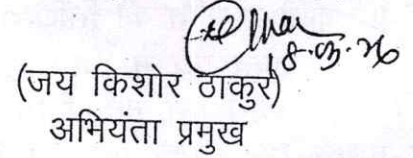 18.03.26
(जय किशोर ठाकुर)
अभियंता प्रमुख